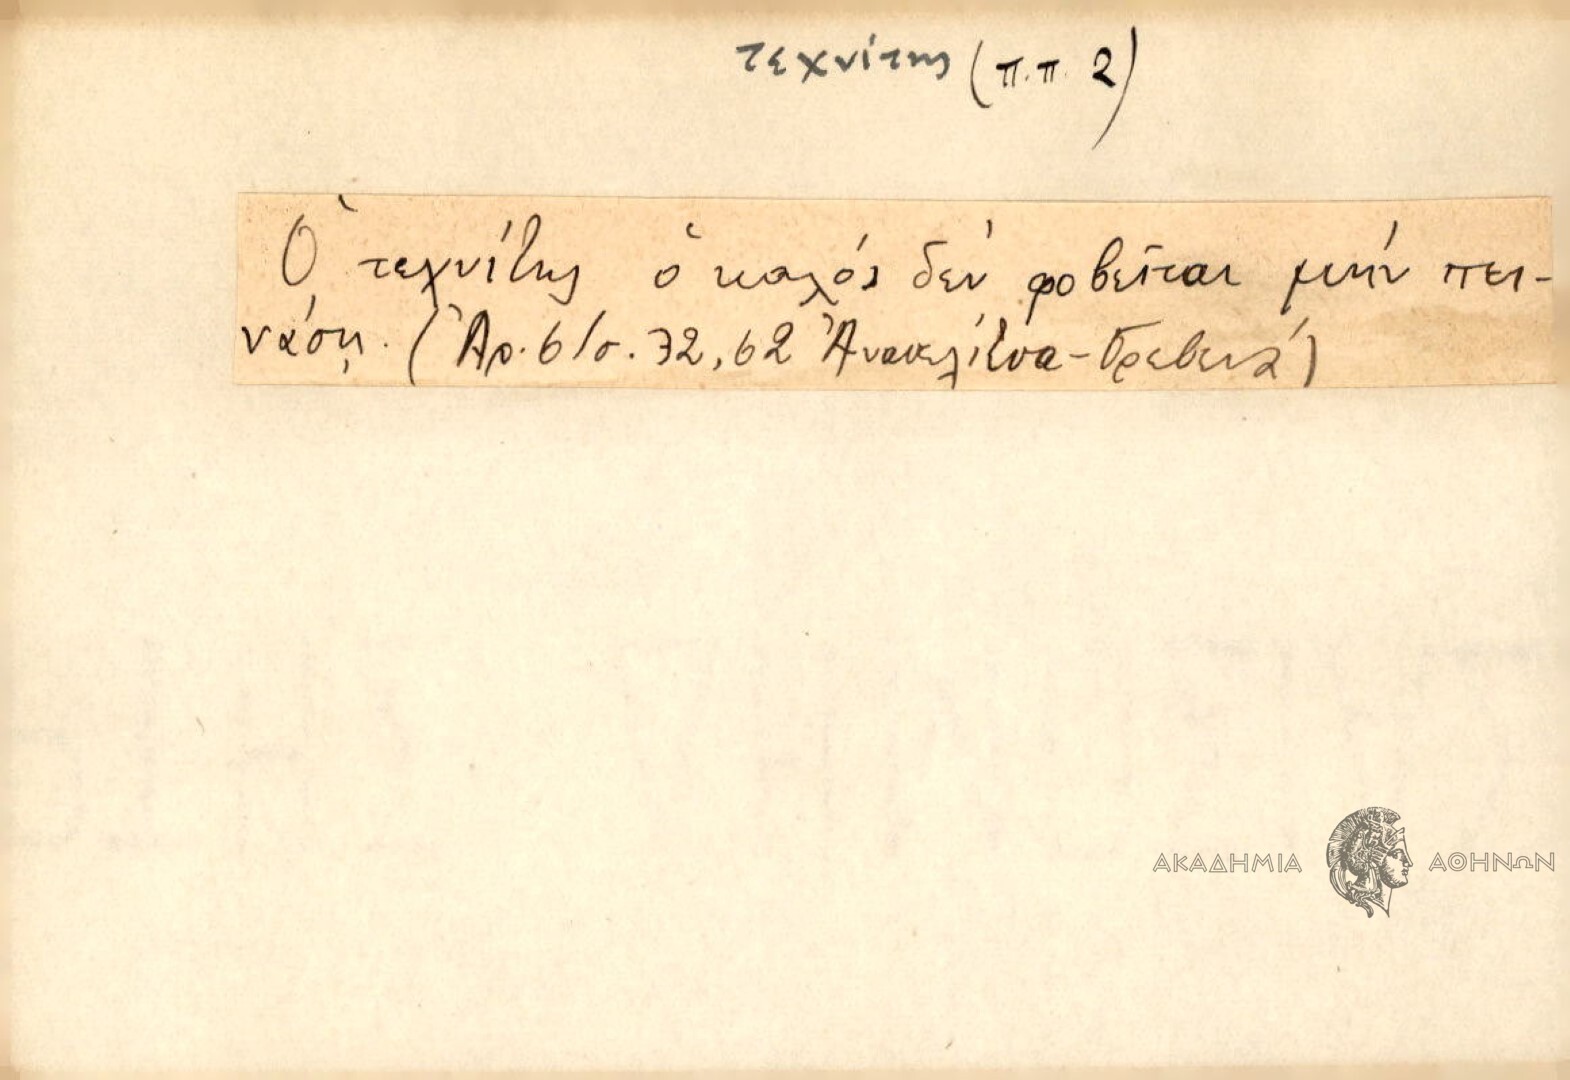 τεχνίτης (π.π. 2)
Ὁ τεχνίτης ὁ καλός δέν φοβεῖται μήν πει-
νάσῃ. (Ἀρ. 6/σ. 72, 62 Ἀνακελίτσα-Γρεβενά)
ΑΚΑΔΗΜΙΑ ΑΘΗΝΩΝ